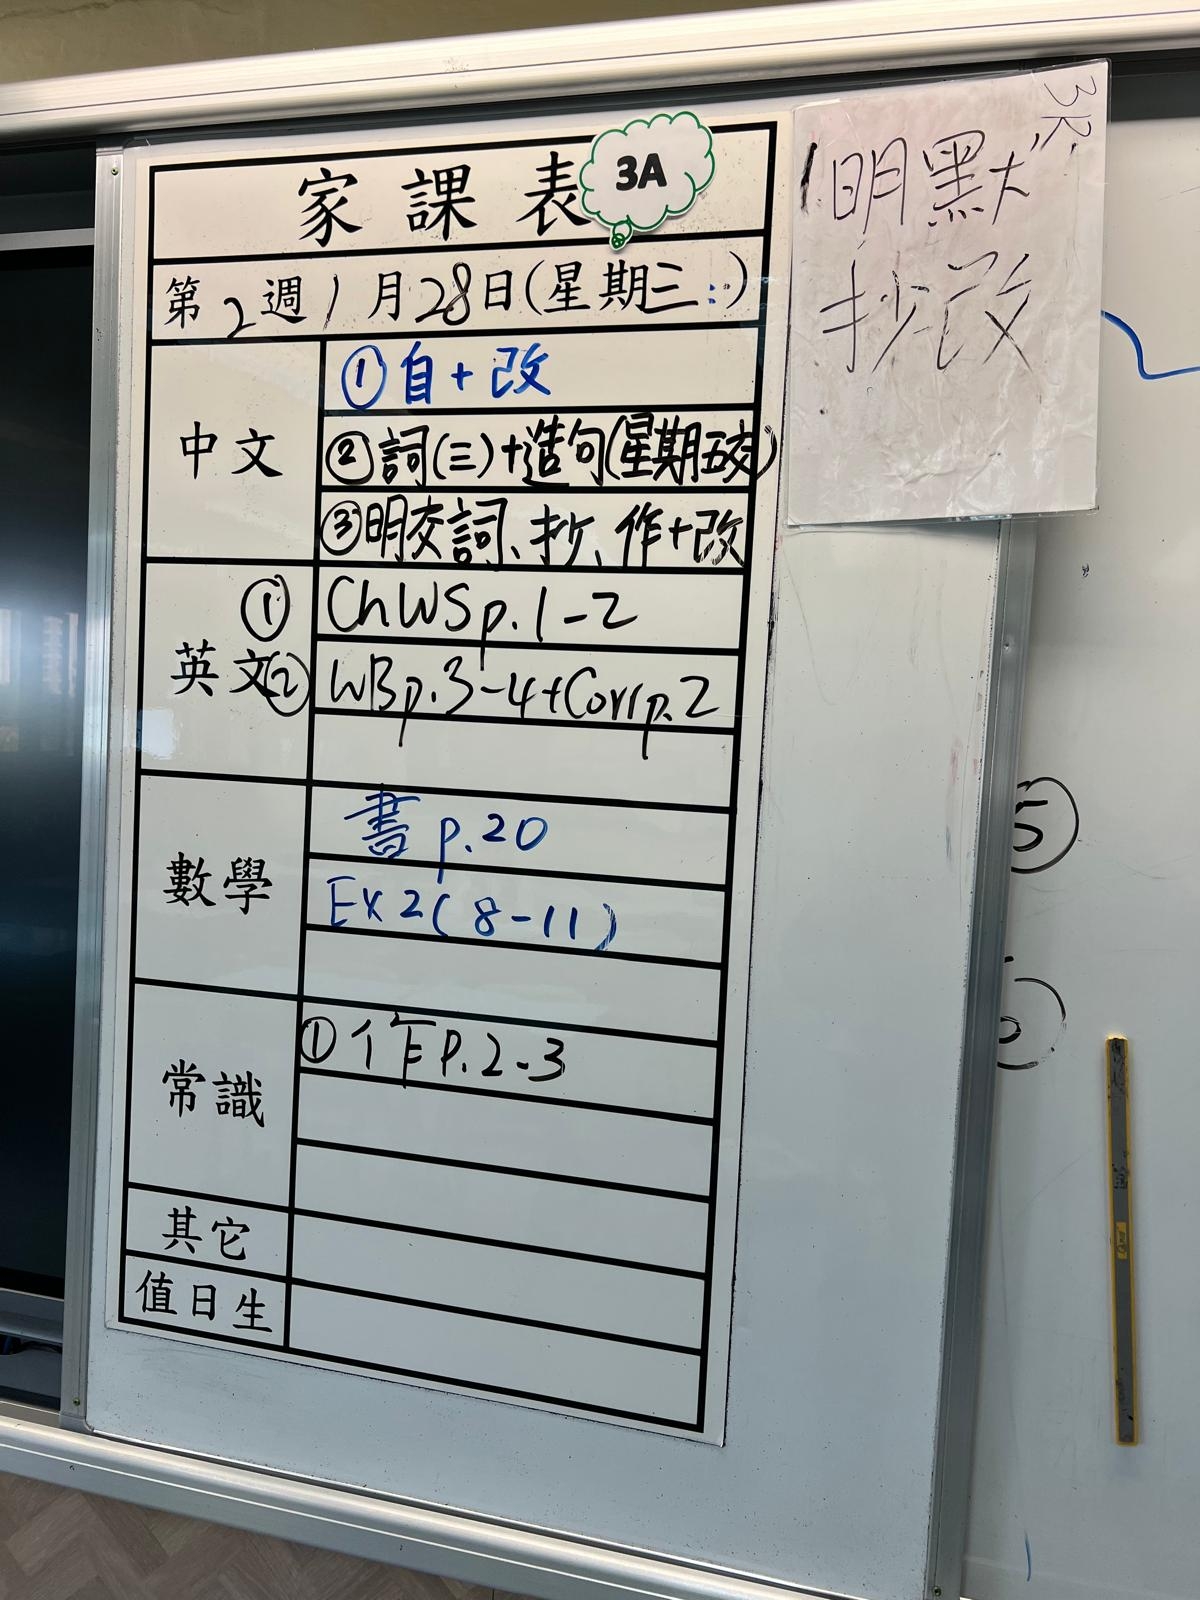 家課表
3A
第2週1月28日(星期三:)
中文
①自+改
②詞(三)+造句(星期五交)
③明交詞、抄、作+改
英文
①ChWSp.1-2
②WBp.3-4+Corrp.2
數學
書p.20
Ex2(8-11)
常識
①作P.2-3
其它
值日生
明默
抄改
⑤